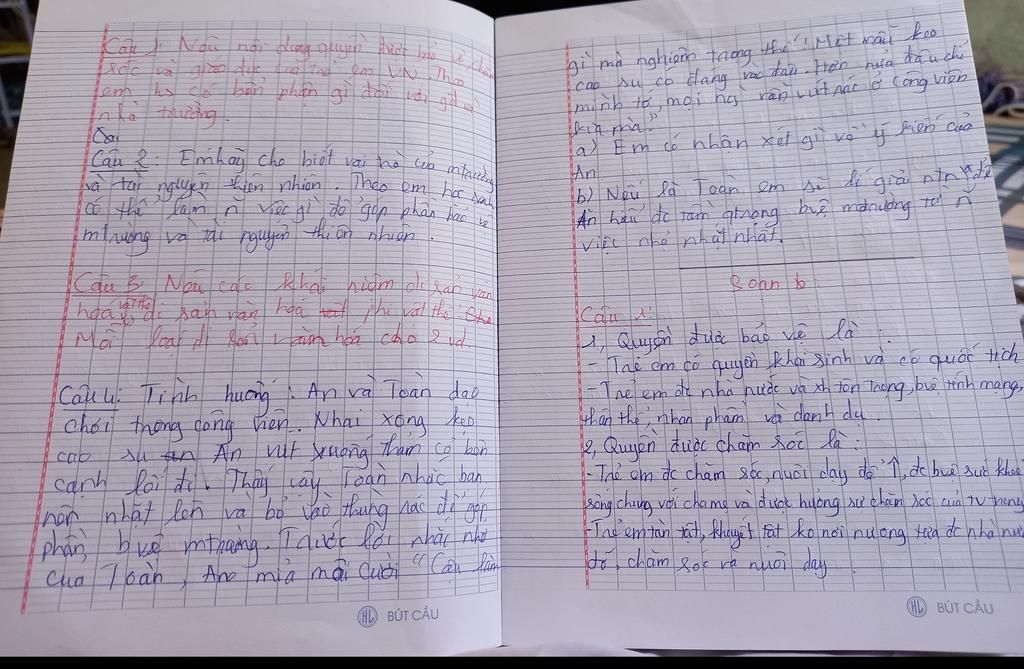 Câu 1: Nêu nội dung quyền được bảo vệ chăm
sóc và giáo dục của trẻ em VN. Theo
em hs có bổn phận gì đối với gđ và
nhà trường.
Câu 2: Em hãy cho biết vai trò của mtrường
và tài nguyên thiên nhiên. Theo em học sinh
có thể làm n~ việc gì để góp phần bảo vệ
mtrường và tài nguyên thiên nhiên.
Câu 3: Nêu các khái niệm di sản văn
hoá vật thể, di sản văn hóa phi vật thể.
Mỗi loại di sản văn hóa cho 2 vd
Câu 4: Tình huống: An và Toàn dạo
chơi trong công viên. Nhai xong kẹo
cao su An vứt xuống thảm cỏ bên
cạnh lối đi. Thấy vậy Toàn nhắc bạn
nên nhặt lên và bỏ vào thùng rác để góp
phần bvệ mtrường. Trước lời nhắc nhở
của Toàn, An mỉa mai cười "Cậu làm
gì mà nghiêm trọng thế! Một mẩu kẹo
cao su có đáng vào đâu. Hơn nữa đâu chỉ
mình tớ, mọi ng` vẫn vứt rác ở công viên
kia mà."
a) Em có nhận xét gì về ý kiến của
An
b) Nếu là Toàn em sẽ lí giải ntn để
An hiểu đc tầm qtrọng bvệ mtrường từ n~
việc nhỏ nhặt nhất.
Soạn
Câu 1:
1, Quyền được bảo vệ là:
- Trẻ em có quyền khai sinh và có quốc tịch
- Trẻ em đc nhà nước và xh tôn trọng, bvệ tính mạng,
thân thể, nhân phẩm và danh dự.
2, Quyền được chăm sóc là:
- Trẻ em đc chăm sóc, nuôi dạy để ↑, đc bvệ sức khoẻ
sống chung với cha mẹ và được hưởng sự chăm sóc của
- Trẻ em tàn tật, khuyết tật ko nơi nương tựa đc nhà nư
đỡ, chăm sóc và nuôi dạy
HL BÚT CẦU
HL BÚT CẦU